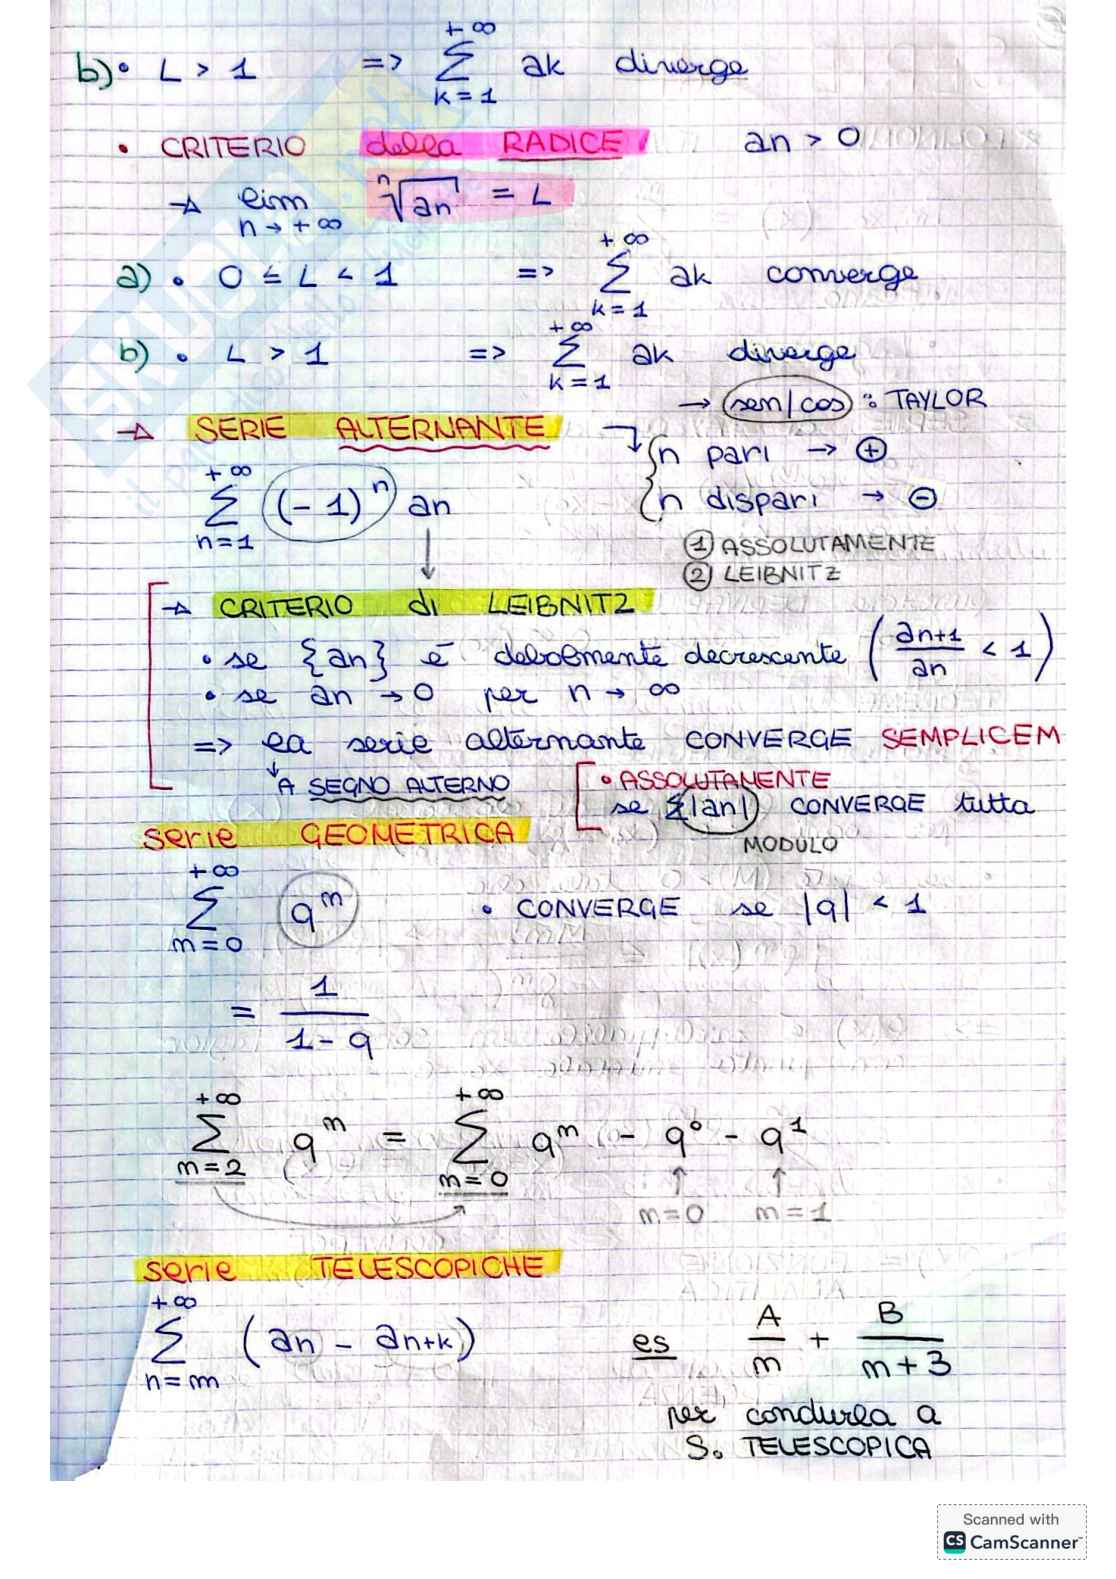 b) • L > 1 => +∞ ∑ k=1 ak diverge
• CRITERIO della RADICE an > 0
→ lim n→+∞ ⁿ√an = L
a) • 0 ≤ L < 1 => +∞ ∑ k=1 ak converge
b) • L > 1 => +∞ ∑ k=1 ak diverge
→ sen/cos : TAYLOR
→ SERIE ALTERNANTE
n pari → ⊕
+∞ ∑ n=1 (-1)ⁿ an
n dispari → ⊖
① ASSOLUTAMENTE
② LEIBNITZ
→ CRITERIO di LEIBNITZ
• se {an} è debolmente decrescente (an+1/an < 1)
• se an → 0 per n → ∞
=> la serie alternante CONVERGE SEMPLICEM
↓ A SEGNO ALTERNO
• ASSOLUTAMENTE
se ∑|an| CONVERGE tutta
MODULO
serie GEOMETRICA
+∞ ∑ m=0 qᵐ • CONVERGE se |q| < 1
= 1/(1-q)
+∞ ∑ m=2 qᵐ = +∞ ∑ m=0 qᵐ - q⁰ - q¹
↑ m=0 ↑ m=1
serie TELESCOPICHE
+∞ ∑ n=m (an - an+k) es A/m + B/(m+3)
per condurla a
S. TELESCOPICA
Scanned with
CS CamScanner